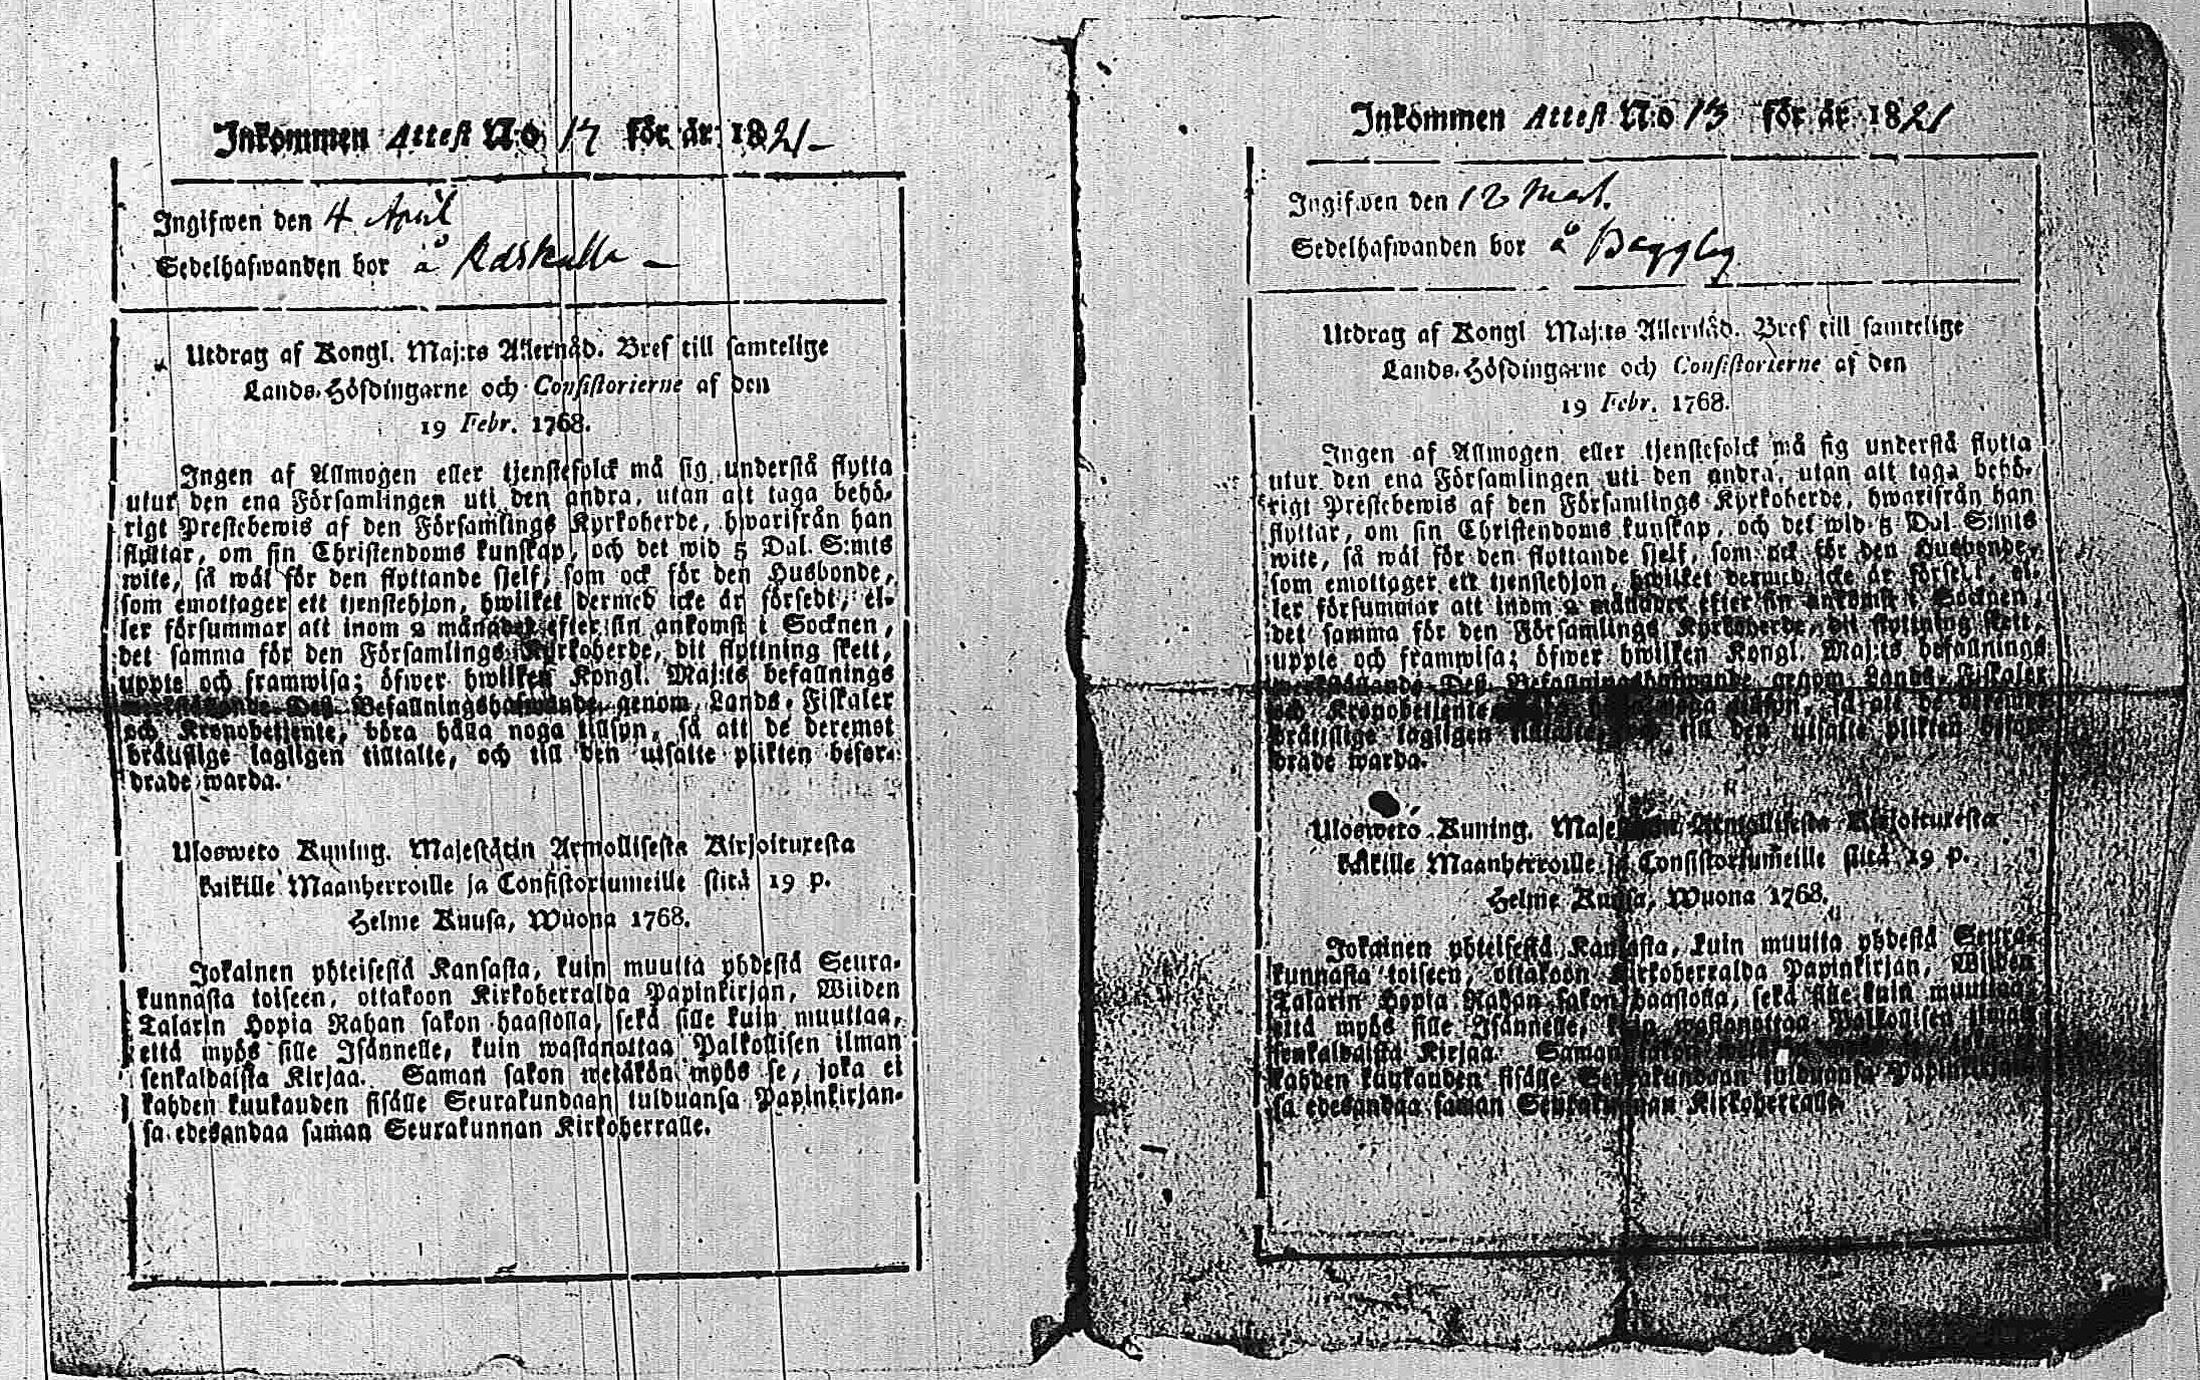 Inkommen Attest N:o 17 för år 1821
Ingifwen den 4 April
Sedelhafwanden bor å
Utdrag af Kongl. Maj:ts Allernåd. Bref till samtelige
Lands-Höfdingarne och Consistorierne af den
19 Febr. 1768.
Ingen af Allmogen eller tjenstefolck må sig understå flytta
utur den ena Församlingen uti den andra, utan att taga behö-
rigt Prestebewis af den Församlings Kyrkoherde, hwarifrån han
flyttar, om sin Christendoms kunskap, och det wid 5 Dal. S:mts
wite, så wäl för den flyttande sjelf, som ock för den Husbonde,
som emottager ett tjenstehjon, hwilket dermed icke är försedt, el-
ler försummar att inom 2 månader efter sin ankomst i Socknen,
det samma för den Församlings Kyrkoherde, dit flyttning skett,
uppte och framwisa; öfwer hwilken Kongl. Maj:ts befallnings
Deß Befallningshafwande genom Lands-Fiskaler
och Kronobetjente, böra hålla noga tilsyn, så att de deremot
bråtislige lagligen tilltalte, och till den utsatte plikten befor-
drade warda.
Ulosweto Kuning. Majestätin Armollisesta Kirjoituxesta
kaikille Maanherroille ja Consistoriumeille siitä 19 p.
Helme Kuusa, Wuona 1768.
Jokainen yhteisestä Kansasta, kuin muutta yhdestä Seura-
kunnasta toiseen, ottakoon Kirkoherralda Papinkirjan, Wiiden
Talarin Hopia Rahan sakon haastolla, sekä sille kuin muuttaa,
että myös sille Isännelle, kuin wastanottaa Palkollisen ilman
senkaldaista Kirjaa. Saman sakon wetäkön myös se, joka ei
kahden kuukauden sisälle Seurakundaan tulduansa Papinkirjan-
sa edesandaa saman Seurakunnan Kirkoherralle.
Inkommen Attest N:o 13 för år 1821
Ingifwen den 12 Mart.
Sedelhafwanden bor å Baggby
Utdrag af Kongl. Maj:ts Allernåd. Bref till samtelige
Lands-Höfdingarne och Consistorierne af den
19 Febr. 1768.
Ingen af Allmogen eller tjenstefolck må sig understå flytta
utur den ena Församlingen uti den andra, utan att taga behö-
rigt Prestebewis af den Församlings Kyrkoherde, hwarifrån han
flyttar, om sin Christendoms kunskap, och det wid 5 Dal. S:mts
wite, så wäl för den flyttande sjelf, som ock för den Husbonde,
som emottager ett tjenstehjon, hwilket dermed icke är försett, el-
ler försummar att inom 2 månader efter sin ankomst i Socknen,
det samma för den Församlings Kyrkoherde, dit flyttning skett,
uppte och framwisa; öfwer hwilken Kongl. Maj:ts befallnings
Deß Befallningshafwande genom Lands-Fiskaler
och Kronobetjente noga tilsyn, så att de deremot
bråtislige lagligen tilltalte, och till den utsatte plikten befor-
drade warda.
Ulosweto Kuning. Majestätin Armollisesta Kirjoituxesta
kaikille Maanherroille ja Consistoriumeille siitä 19 p.
Helme Kuusa, Wuona 1768.
Jokainen yhteisestä Kansasta, kuin muutta yhdestä Seura-
kunnasta toiseen, ottakoon Kirkoherralda Papinkirjan, Wiiden
Talarin Hopia Rahan sakon haastolla, sekä sille kuin muuttaa,
että myös sille Isännelle, kuin wastanottaa Palkollisen ilman
senkaldaista Kirjaa. Saman sakon
kahden kuukauden sisälle Seurakundaan tulduansa Papinkirjan-
sa edesandaa saman Seurakunnan Kirkoherralle.